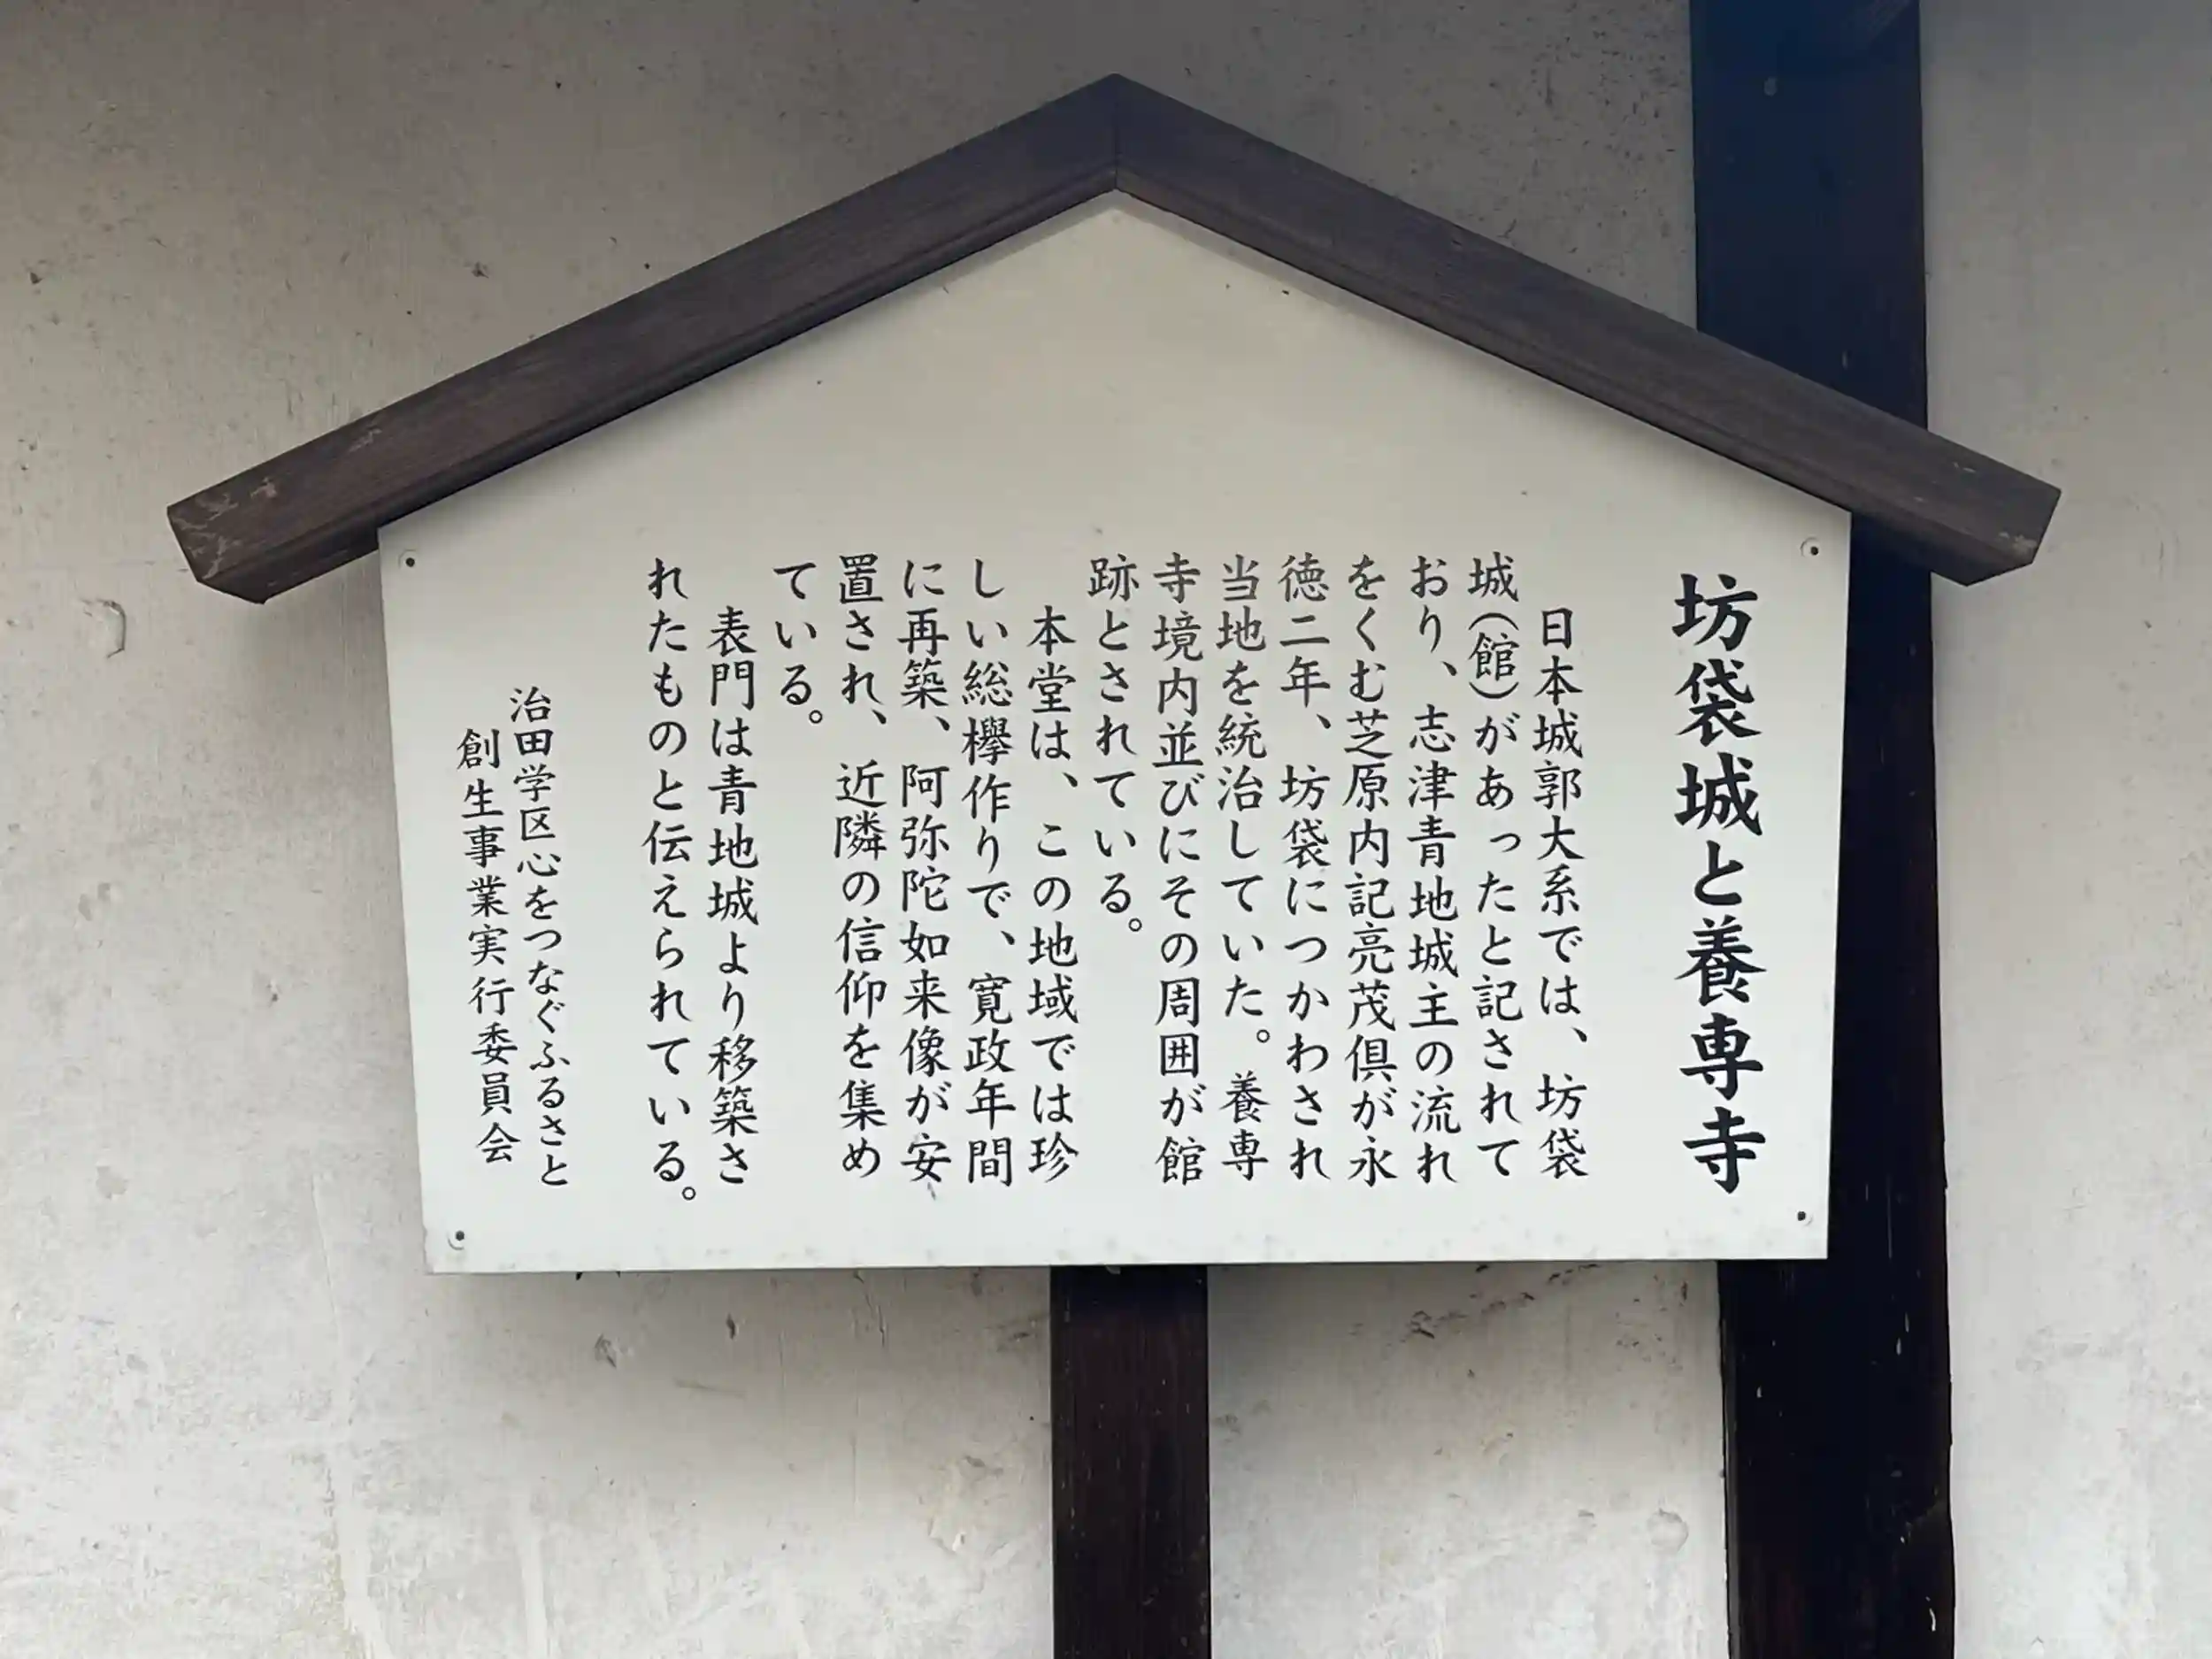 坊袋城と養専寺
日本城郭大系では、坊袋
城(館)があったと記されて
おり、志津青地城主の流れ
をくむ芝原内記亮茂俱が永
徳二年、坊袋につかわされ
当地を統治していた。養専
寺境内並びにその周囲が館
跡とされている。
本堂は、この地域では珍
しい総欅作りで、寛政年間
に再築、阿弥陀如来像が安
置され、近隣の信仰を集め
ている。
表門は青地城より移築さ
れたものと伝えられている。
治田学区心をつなぐふるさと
創生事業実行委員会